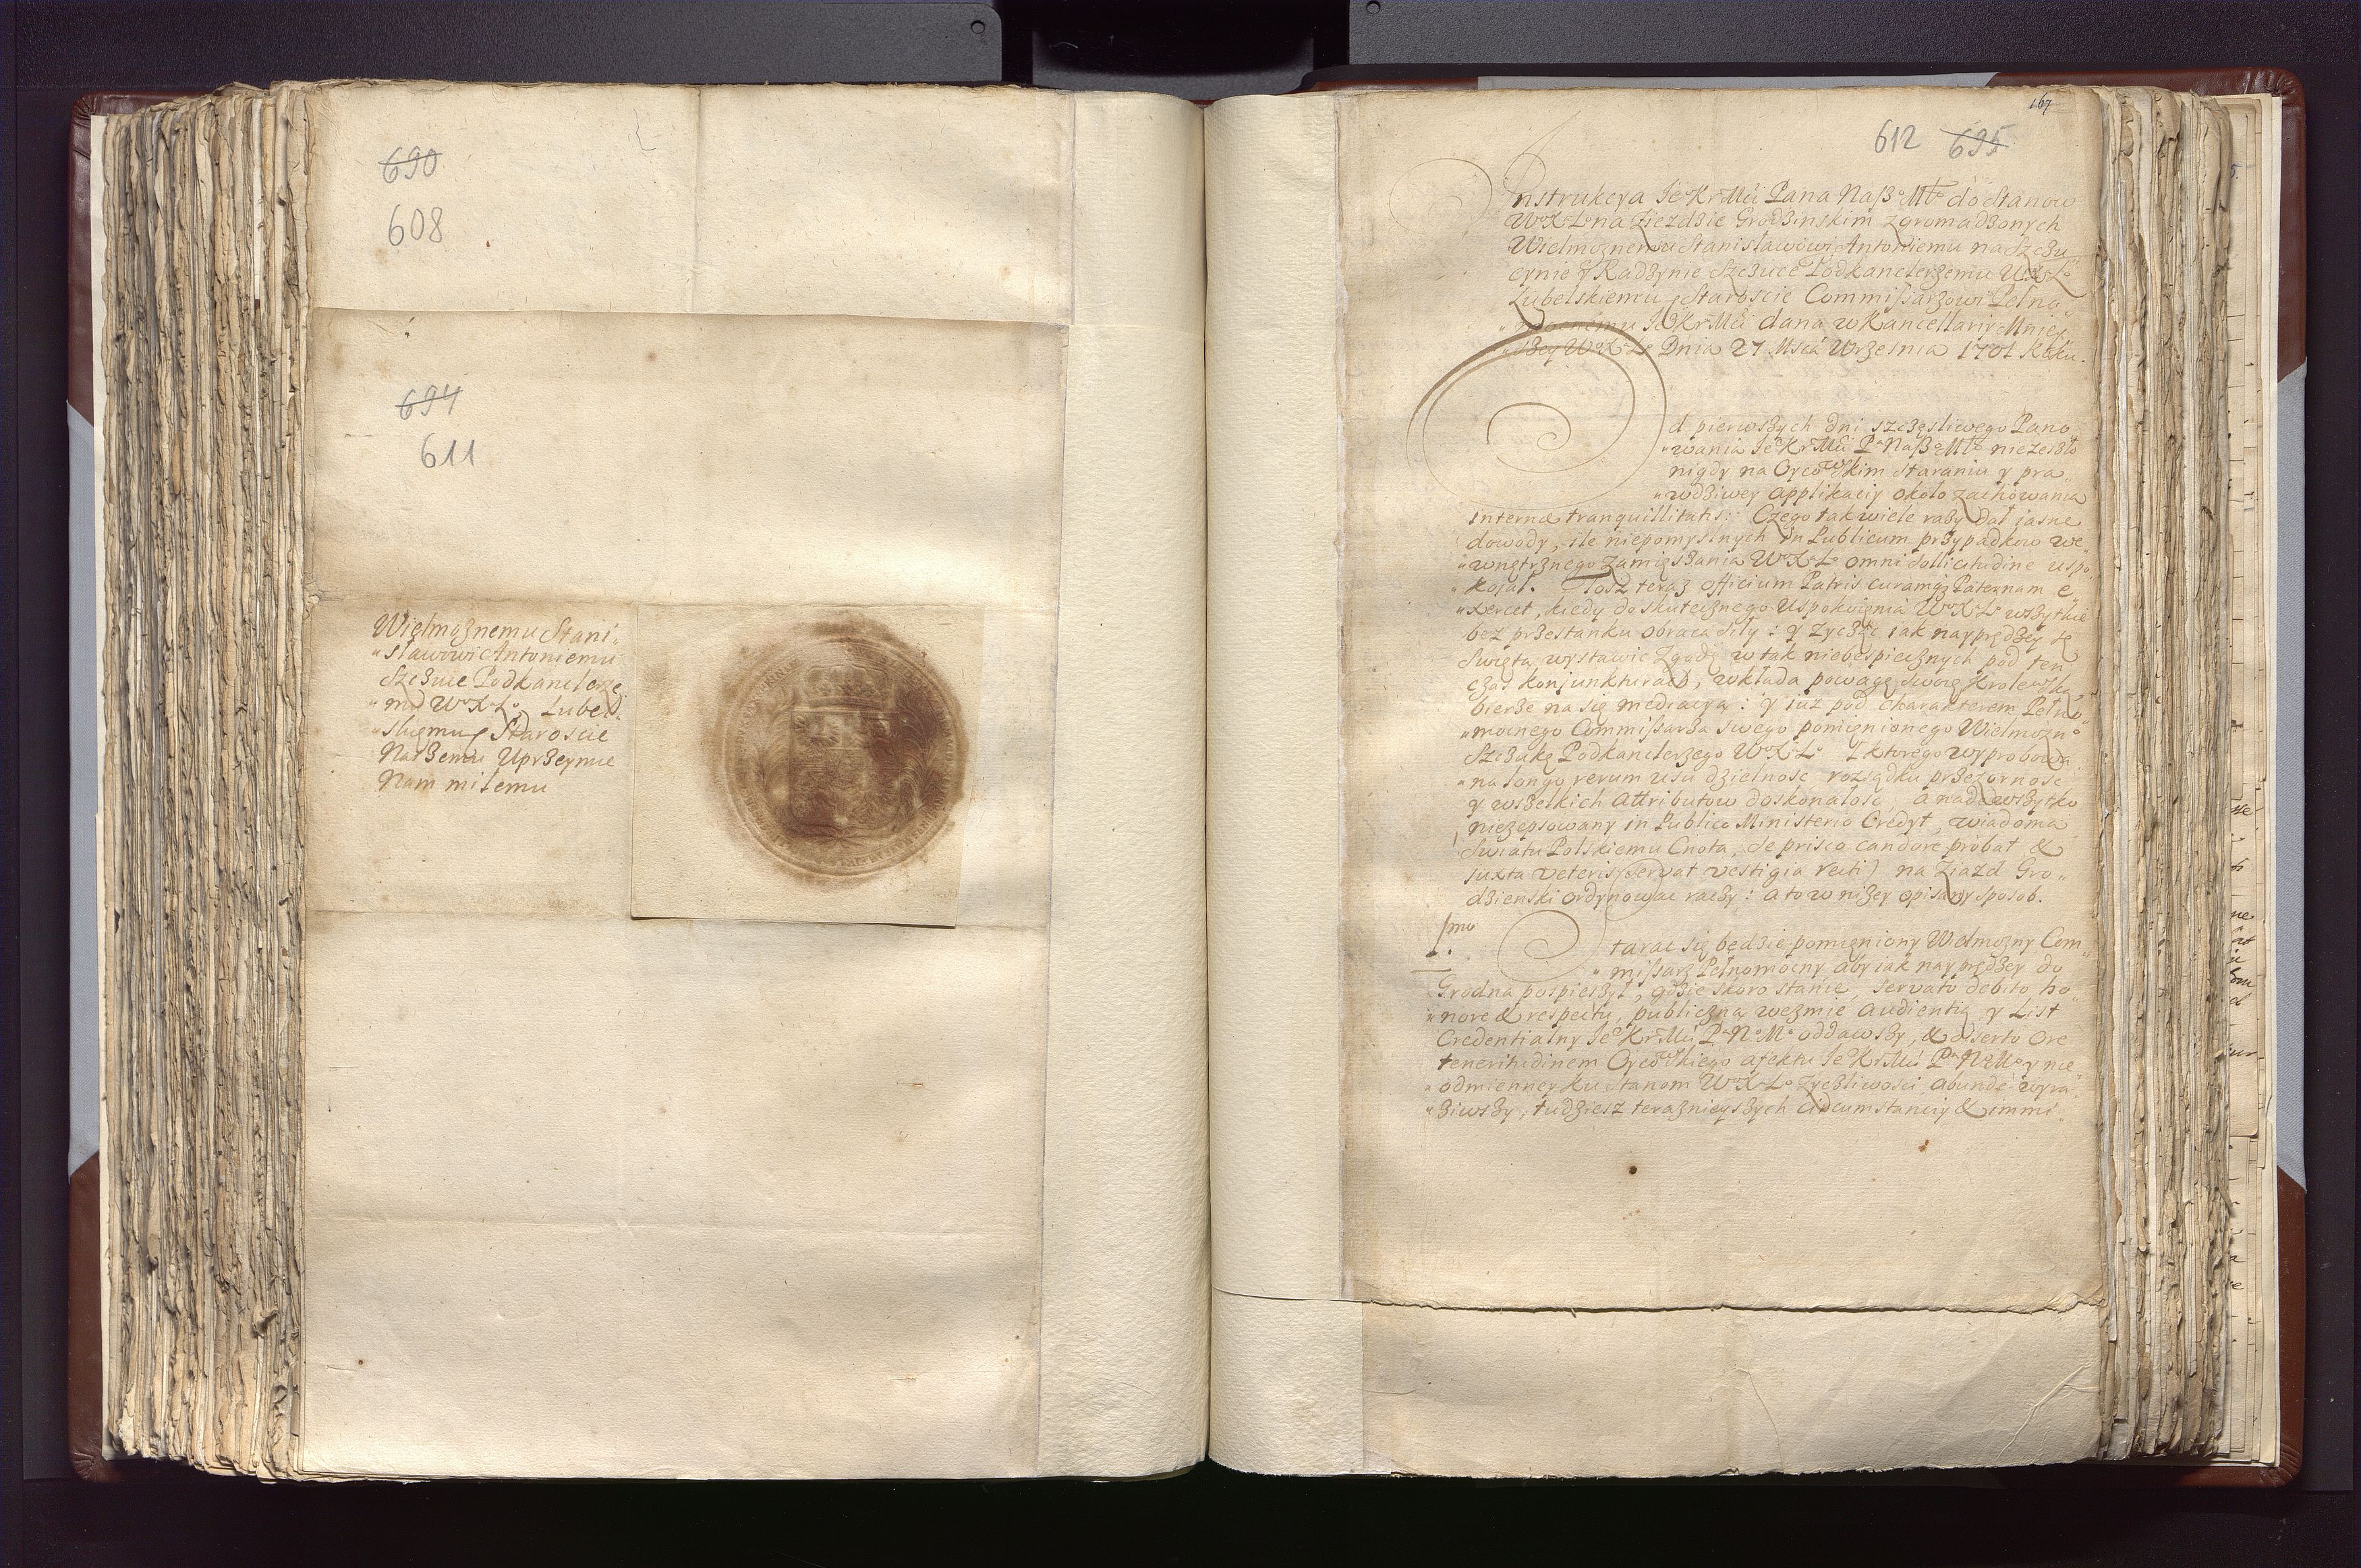 690
608
694
611
Wielmożnemu Stani„
„sławowi Antoniemu
Szczuce Podkanclerze„
„mu WoXoLo, Lubel„
„skiemu Staroscie
Naszemu Uprzeymie
Nam miłemu
167
612 695
Instrukcya JeoKrMći Pana Naßo Mło do Stanow
WoXoLo na Zieździe Grodzinskim zgromadzonych
Wielmoznemu Stanisławowi Antoniemu na Szczu
czynie y Radzynie Szczuce Podkanclerzemu WoXLo
Lubelskiemu Staroscie Commißarzowi Pełno„
„mocnemu JeoKrMći dana w Kancellaryi Mniey„
„szey WoXoLo Dnia 27 Mscá Wrzesnia 1701 Roku.
Od pierwszych dni szczęsliwego Pano„
„wania JeoKrMći Pa Naßo Mło niezeszło
nigdy na Oycowskim staraniu y pra„
„wdziwey applikaciy około zachowania
internæ tranquillitatis: Czego tak wiele razy dał jasne
dowody, ile niepomyslnych in Publicum przypadkow we„
„wnętrznego zamięszania WoXoLo omni sollicitudine uspo„
„koiał. Tosz teraz officium Patris curamq; Paternam e„
„xercet, kiedy do skutecznego Uspokoięnia WoXoLo wszytkie
bez przestanku obraca siły: y zycząc iak nayprędzey tę
Swiętą wystawic Zgodę w tak niebespiecznych pod ten
czas konjunkturach, wkłada powagę swoię Krolewską
bierze na się mediacyą: y iuz pod charakterem Pełno„
„mocnego Commißarza swego pomięnionego Wielmozno
Szczukę Podkanclerzego WoXoLo (ktorego wyprobowa„
„na longo rerum usu dzielnosc, rozsądku przezornosc
y wszelkich attributow doskonałosc, a nadewszytko
niezepsowany in Publico Ministerio Credyt, wiadoma
Swiatu Polskiemu Cnota, se prisco candore probat &
juxta veteris servat vestigia recti) na Ziazd Gro„
dzienski ordynowac raczy: a to w nizey opisany sposob.
1mo
Starac się będzie pomięniony Wielmozny Com„
„mißarz Pełnomocny aby iak nayprędzey do
Grodna pospieszył, gdzie skoro stanie, servato debito ho„
„nore & respectu, publiczną wezmie Audientią y List
Credentialny JeoKrMći Pa No Mo oddawszy, & diserto ore
teneritudinem Oycowskiego afektu JeoKrMći Pa No Mo y nie
„odmienney ku Stanom WoXoLo zyczliwosci abundè wyra„
„ziwszy, tudziesz teraznieyszych circumstanciy & immi„